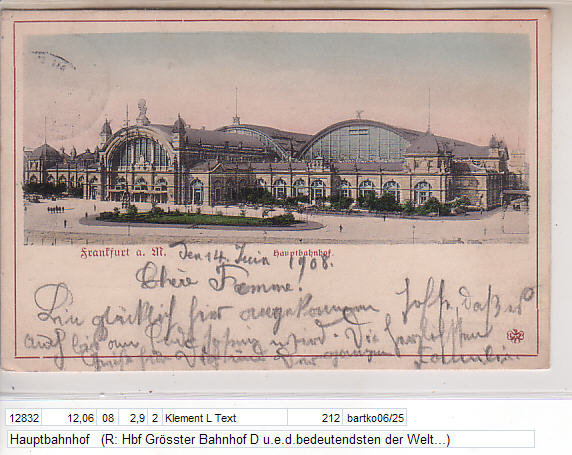 Frankfurt a. M.
Hauptbahnhof.
den 14. Juni 1908.
Chère Femme!
Bin glücklich hier angekommen hoffe, daß es
auch wird. Die herzlichsten
für Dich und der ganzen Familie.
12832 12,06 08 2,9 2 Klement L Text 212 bartko06/25
Hauptbahnhof (R: Hbf Grösster Bahnhof D u.e.d.bedeutendsten der Welt...)